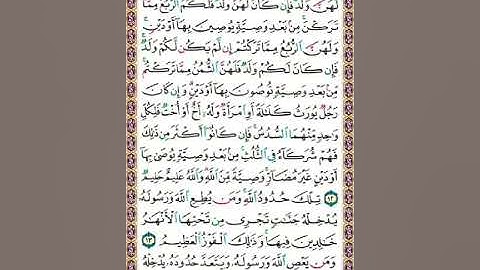 لَهُنَّ وَلَدٌ فَإِن كَانَ لَهُنَّ وَلَدٌ فَلَكُمُ الرُّبُعُ مِمَّا
تَرَكْنَ مِنۢ بَعْدِ وَصِيَّةٍ يُوصِينَ بِهَا أَوْ دَيْنٍ
وَلَهُنَّ الرُّبُعُ مِمَّا تَرَكْتُمْ إِن لَّمْ يَكُن لَّكُمْ وَلَدٌ
فَإِن كَانَ لَكُمْ وَلَدٌ فَلَهُنَّ الثُّمُنُ مِمَّا تَرَكْتُم
مِّنۢ بَعْدِ وَصِيَّةٍ تُوصُونَ بِهَا أَوْ دَيْنٍ وَإِن كَانَ
رَجُلٌ يُورَثُ كَلَٰلَةً أَوِ امْرَأَةٌ وَلَهُۥ أَخٌ أَوْ أُخْتٌ فَلِكُلِّ
وَٰحِدٍ مِّنْهُمَا السُّدُسُ فَإِن كَانُوٓا۟ أَكْثَرَ مِن ذَٰلِكَ
فَهُمْ شُرَكَآءُ فِى الثُّلُثِ مِنۢ بَعْدِ وَصِيَّةٍ يُوصَىٰ بِهَآ
أَوْ دَيْنٍ غَيْرَ مُضَآرٍّ وَصِيَّةً مِّنَ اللَّهِ وَاللَّهُ عَلِيمٌ حَلِيمٌ
١٢ تِلْكَ حُدُودُ اللَّهِ وَمَن يُطِعِ اللَّهَ وَرَسُولَهُۥ
يُدْخِلْهُ جَنَّٰتٍ تَجْرِى مِن تَحْتِهَا الْأَنْهَٰرُ
خَٰلِدِينَ فِيهَا وَذَٰلِكَ الْفَوْزُ الْعَظِيمُ ١٣
وَمَن يَعْصِ اللَّهَ وَرَسُولَهُۥ وَيَتَعَدَّ حُدُودَهُۥ يُدْخِلْهُ